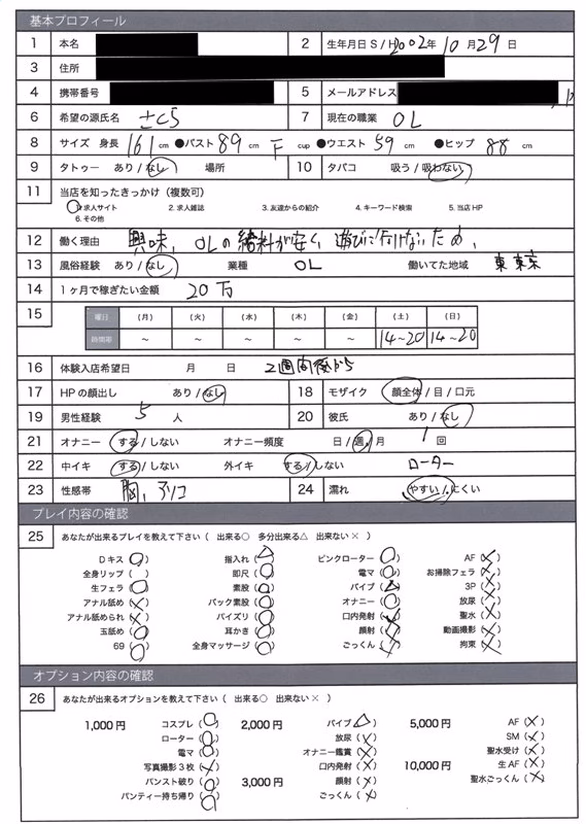 基本プロフィール
1 本名 2 生年月日 S / H 2002年 10月 29日
3 住所
4 携帯番号 5 メールアドレス
6 希望の源氏名 さくら 7 現在の職業 OL
8 サイズ 身長 161cm ●バスト 89cm F cup ●ウエスト 59cm ●ヒップ 88cm
9 タトゥー あり / なし 場所 10 タバコ 吸う / 吸わない
11 当店を知ったきっかけ（複数可）
1.求人サイト 2.求人雑誌 3.友達からの紹介 4.キーワード検索 5.当店HP
6.その他
12 働く理由 興味、OLの給料が安く、遊びに行けないため、
13 風俗経験 あり / なし 業種 OL 働いてた地域 東京
14 1ヶ月で稼ぎたい金額 20万
15 曜日 (月) (火) (水) (木) (金) (土) (日)
時間帯 ～ ～ ～ ～ ～ 14～20 14～20
16 体験入店希望日 月 日 2週間後から
17 HPの顔出し あり / なし 18 モザイク 顔全体 / 目 / 口元
19 男性経験 5人 20 彼氏 あり / なし
21 オナニー する / しない オナニー頻度 日 / 週 / 月 1回
22 中イキ する / しない 外イキ する / しない ローター
23 性感帯 胸、クリ 24 濡れ やすい / にくい
プレイ内容の確認
25 あなたが出来るプレイを教えて下さい（ 出来る○ 多分出来る△ 出来ない× ）
Dキス (○) 指入れ (△) ピンクローター (○) AF (×)
全身リップ ( ) 即尺 (○) 電マ (○) お掃除フェラ (×)
生フェラ (○) 素股 (○) バイブ (△) 3P (×)
アナル舐め (×) バック素股 (○) オナニー (○) 放尿 (×)
アナル舐められ (×) パイズリ (○) 口内発射 (×) 聖水 (×)
玉舐め (○) 耳かき (○) 顔射 (×) 動画撮影 (×)
69 (○) 全身マッサージ (○) ごっくん (×) 拘束 (×)
オプション内容の確認
26 あなたが出来るオプションを教えて下さい（ 出来る○ 出来ない× ）
1,000円 コスプレ (○) 2,000円 バイブ (△) 5,000円 AF (×)
ローター (○) 放尿 (×) SM (×)
電マ (○) オナニー鑑賞 (×) 聖水受け (×)
写真撮影3枚 (×) 口内発射 (×) 10,000円 生AF (×)
パンスト破り (○) 3,000円 顔射 (×) 聖水ごっくん (×)
パンティー持ち帰り (○) ごっくん (×)